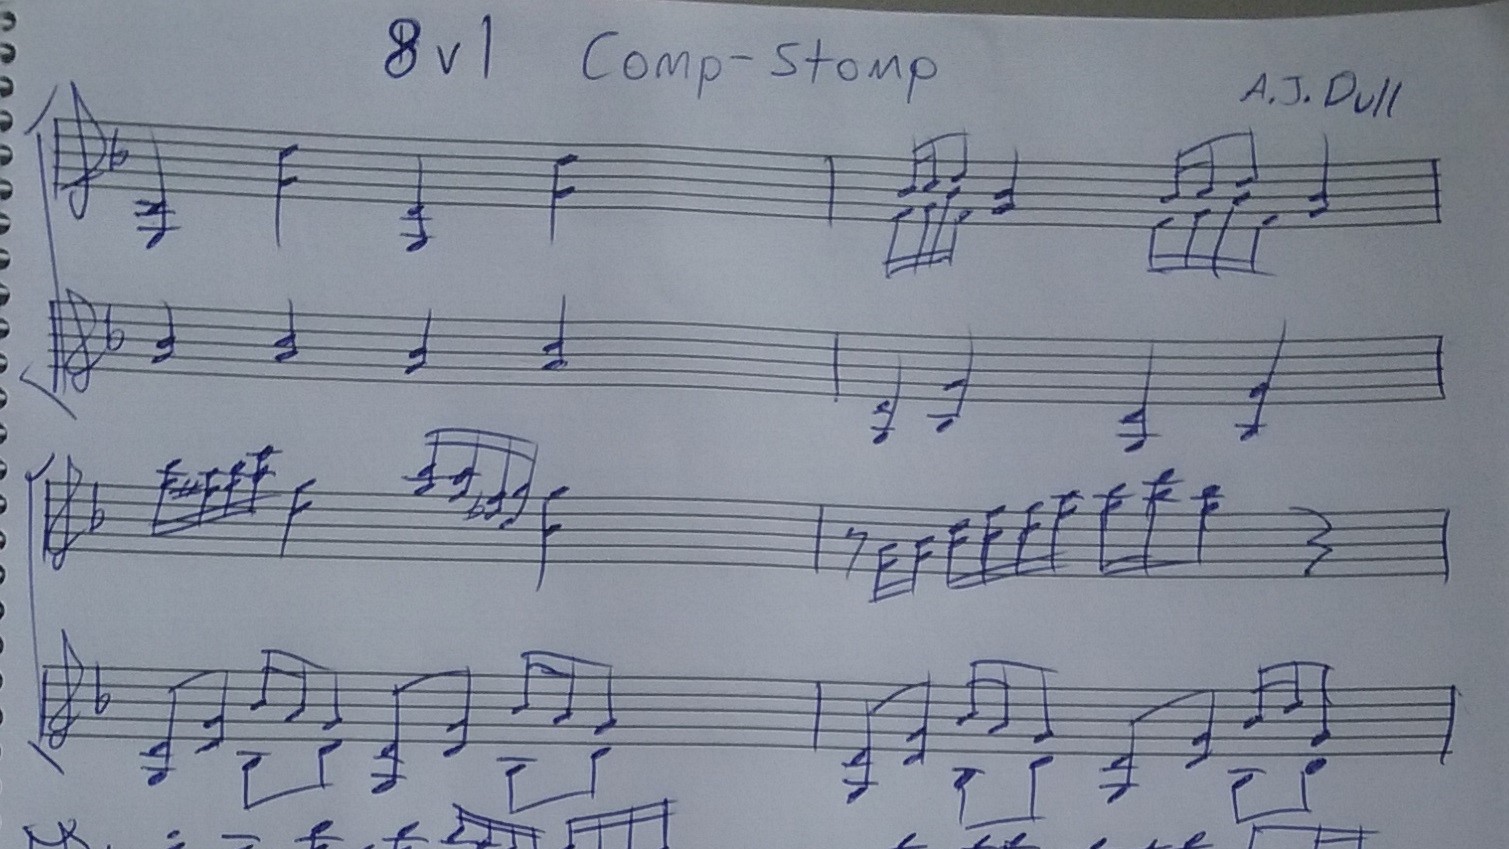 8v1 Comp-Stomp
A.J. Dull